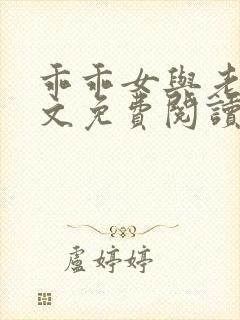 乖乖女與老
文免費閱讀
盧婷婷